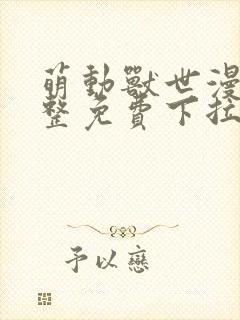 萌動獸世漫
整免費下拉
予以戀